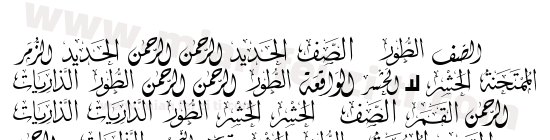 الصف الطور الصف الحديد الرحمن الرحمن الحديد الزمر
الممتحنة الحشر لله الحجر الواقعة الطور الرحمن الرحمن الطور الذاريات
الرحمن القمر الصف الحشر الحشر الطور الذاريات الذاريات